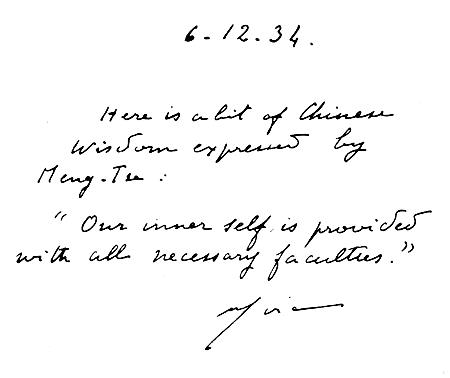 6-12.34.
Here is a bit of Chinese
Wisdom expressed by
Meng-Tse :
"Our inner self is provided
with all necessary faculties."